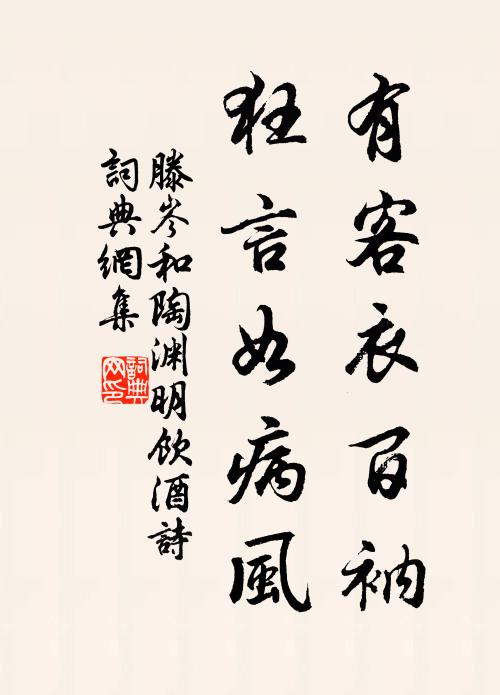 有客衣百衲
狂言如病風
滕岑和陶淵明飲酒詩
詞典網集
詞典網印